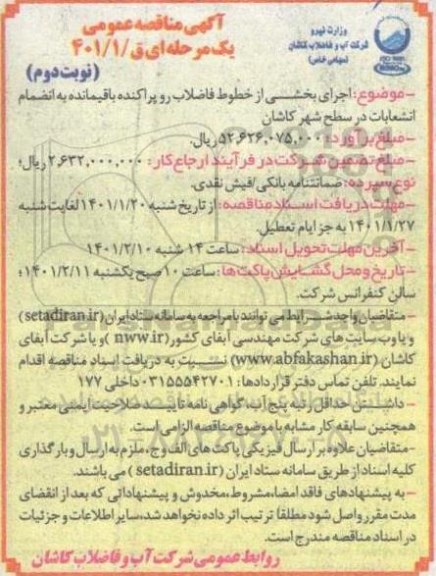 آگهی مناقصه عمومی
یک مرحله ای ق/۴۰۱/۱
(نوبت دوم)
وزارت نیرو
شرکت آب و فاضلاب کاشان
(سهامی خاص)
-موضوع: اجرای بخشی از خطوط فاضلاب رو پراکنده باقیمانده به انضمام
انشعابات در سطح شهر کاشان
-مبلغ برآورد: ۵۲,۶۲۶,۰۷۵,۰۰۰ ریال.
-مبلغ تضمین شرکت در فرآیند ارجاع کار: ۲,۶۳۲,۰۰۰,۰۰۰ ریال؛
نوع سپرده: ضمانتنامه بانکی/فیش نقدی.
-مهلت دریافت اسناد مناقصه: از تاریخ شنبه ۱۴۰۱/۱/۲۰ لغایت شنبه
۱۴۰۱/۱/۲۷ به جز ایام تعطیل.
-آخرین مهلت تحویل اسناد: ساعت ۱۴ شنبه ۱۴۰۱/۲/۱۰
-تاریخ و محل گشایش پاکت ها: ساعت ۱۰ صبح یکشنبه ۱۴۰۱/۲/۱۱؛
سالن کنفرانس شرکت.
-متقاضیان واجد شرایط می توانند با مراجعه به سامانه ستاد ایران (setadiran.ir)
و یا وب سایت های شرکت مهندسی آبفای کشور (nww.ir) و یا شرکت آبفای
کاشان (www.abfakashan.ir) نسبت به دریافت اسناد مناقصه اقدام
نمایند. تلفن تماس دفتر قراردادها: ۰۳۱۵۵۵۴۲۷۰۱ داخلی ۱۷۷
- داشتن حداقل رتبه پنج آب، گواهی نامه تایید صلاحیت ایمنی معتبر و
همچنین سابقه کار مشابه با موضوع مناقصه الزامی است.
-متقاضیان علاوه بر ارسال فیزیکی پاکت های الف و ج، ملزم به ارسال و بارگذاری
کلیه اسناد از طریق سامانه ستاد ایران (setadiran.ir) می باشند.
-به پیشنهادهای فاقد امضا، مشروط، مخدوش و پیشنهاداتی که بعد از انقضای
مدت مقرر واصل شود مطلقا ترتیب اثر داده نخواهد شد، سایر اطلاعات و جزئیات
در اسناد مناقصه مندرج است.
روابط عمومی شرکت آب و فاضلاب کاشان